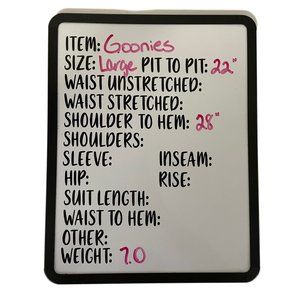 ITEM: Goonies
SIZE: Large PIT TO PIT: 22"
WAIST UNSTRETCHED:
WAIST STRETCHED:
SHOULDER TO HEM: 28"
SHOULDERS:
SLEEVE: INSEAM:
HIP: RISE:
SUIT LENGTH:
WAIST TO HEM:
OTHER:
WEIGHT: 7.0